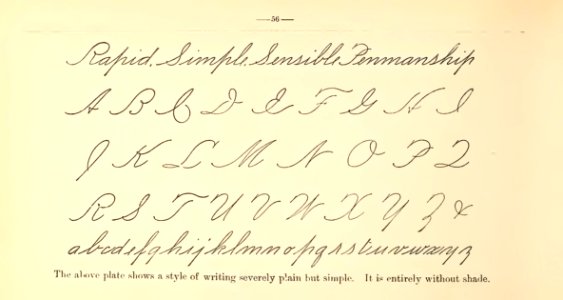 —56—
Rapid. Simple. Sensible Penmanship
A B C D E F G H I
J K L M N O P Q
R S T U V W X Y Z &
abcdefghijklmnopqrstuvwxyz
The above plate shows a style of writing severely plain but simple. It is entirely without shade.